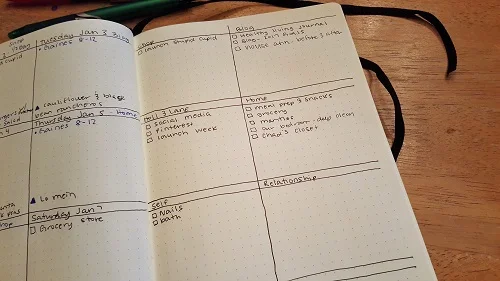 Tuesday Jan 3 Blog
• Gaines 8-12
▲ cauliflower &
bean rancheros
Thursday Jan 5 - Home
• Gaines 8-12
▲ lo mein
Saturday Jan 7
□ Grocery store
□ launch stupid cupid
Holl & Lane
□ social media
□ pinterest
□ launch week
self
□ Nails
□ bath
Blog
□ Healthy Living Journal
□ 2017 Goals
□ House ann. before & after
Home
□ meal prep & snacks
□ grocery
□ our bedroom - deep clean
□ Chad's closet
Relationship